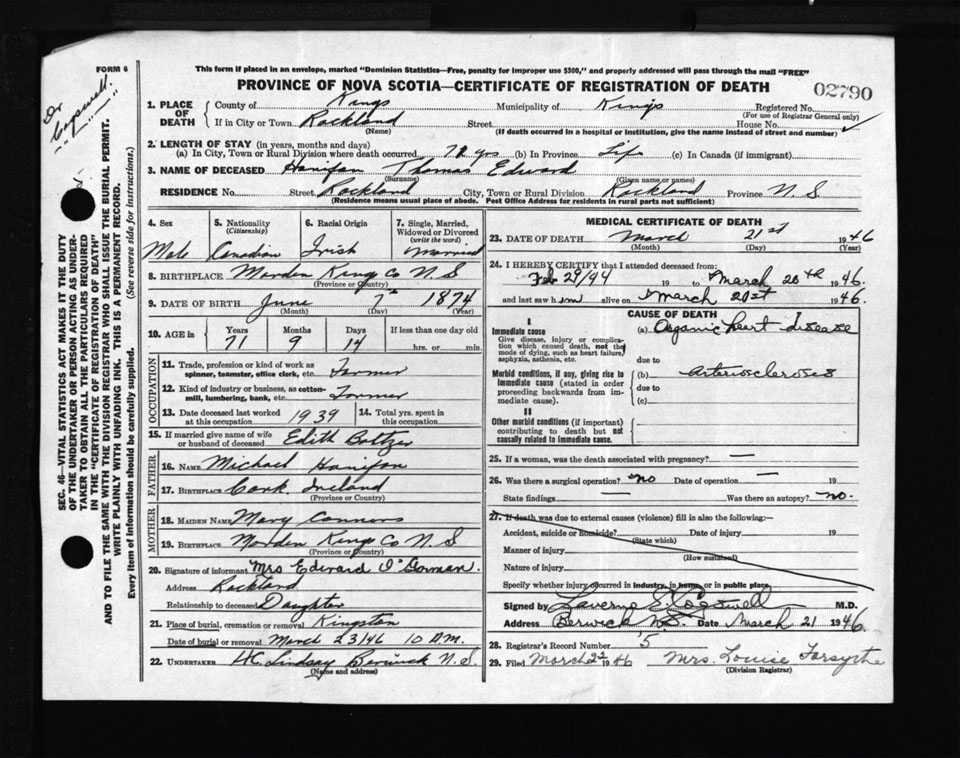 This form if placed in an envelope, marked "Dominion Statistics—Free, penalty for improper use $300," and properly addressed will pass through the mail "FREE"
FORM 6
PROVINCE OF NOVA SCOTIA—CERTIFICATE OF REGISTRATION OF DEATH
02790
Dr Cogswell
SEC. 46—VITAL STATISTICS ACT MAKES IT THE DUTY
OF THE UNDERTAKER OR PERSON ACTING AS UNDER-
TAKER TO OBTAIN ALL THE PARTICULARS REQUIRED
IN THE "CERTIFICATE OF REGISTRATION OF DEATH"
AND TO FILE THE SAME WITH THE DIVISION REGISTRAR WHO SHALL ISSUE THE BURIAL PERMIT.
WRITE PLAINLY WITH UNFADING INK. THIS IS A PERMANENT RECORD.
Every item of information should be carefully supplied. (See reverse side for instructions.)
1. PLACE OF DEATH County of Kings Municipality of Kings Registered No.
(For use of Registrar General only)
If in City or Town Rockland Street House No.
(Name) (If death occurred in a hospital or institution, give the name instead of street and number)
2. LENGTH OF STAY (in years, months and days)
(a) In City, Town or Rural Division where death occurred 72 yrs (b) In Province Life (c) In Canada (if immigrant)
3. NAME OF DECEASED Hanifan Thomas Edward
(Surname) (Given name or names)
RESIDENCE No. Street Rockland City, Town or Rural Division Rockland Province N.S
(Residence means usual place of abode. Post Office Address for residents in rural parts not sufficient)
4. Sex 5. Nationality (Citizenship) 6. Racial Origin 7. Single, Married, Widowed or Divorced (write the word)
Male Canadian Irish Married
8. BIRTHPLACE Morden Kings Co N.S
(Province or Country)
9. DATE OF BIRTH June 7th 1874
(Month) (Day) (Year)
10. AGE in Years Months Days If less than one day old
71 9 14 hrs. or min.
OCCUPATION
11. Trade, profession or kind of work as spinner, teamster, office clerk, etc. Farmer
12. Kind of industry or business, as cotton-mill, lumbering, bank, etc. Farmer
13. Date deceased last worked at this occupation 1939 14. Total yrs. spent in this occupation
15. If married give name of wife or husband of deceased Edith Baltzer
FATHER
16. NAME Michael Hanifan
17. BIRTHPLACE Cork Ireland
(Province or Country)
MOTHER
18. MAIDEN NAME Mary Connors
19. BIRTHPLACE Morden Kings Co N.S
(Province or Country)
20. Signature of informant Mrs Edward O'Gorman.
Address Rockland
Relationship to deceased Daughter
21. Place of burial, cremation or removal Kingston
Date of burial or removal March 23/46 10 A.M.
22. UNDERTAKER H.C. Lindsay Berwick N.S.
(Name and address)
MEDICAL CERTIFICATE OF DEATH
23. DATE OF DEATH March 21st 1946
(Month) (Day) (Year)
24. I HEREBY CERTIFY that I attended deceased from:
Feb 29/44 19 to March 20th 1946.
and last saw him alive on March 20th 1946.
CAUSE OF DEATH
I
Immediate cause (a) Organic heart disease
Give disease, injury or complication which caused death, not the mode of dying, such as heart failure, asphyxia, asthenia, etc.
due to
Morbid conditions, if any, giving rise to immediate cause (stated in order proceeding backwards from immediate cause).
(b) Arteriosclerosis
due to
(c)
II
Other morbid conditions (if important) contributing to death but not causally related to immediate cause.
25. If a woman, was the death associated with pregnancy? —
26. Was there a surgical operation? no Date of operation — 19
State findings — Was there an autopsy? no.
27. If death was due to external causes (violence) fill in also the following:—
Accident, suicide or homicide? Date of injury 19
(State which)
Manner of injury
(How sustained)
Nature of injury
Specify whether injury occurred in industry, in home, or in public place
Signed by Laverne E. Cogswell M.D.
Address Berwick N.S. Date March 21 1946.
28. Registrar's Record Number 5
29. Filed March 22 1946 Mrs. Louise Forsythe
(Division Registrar)